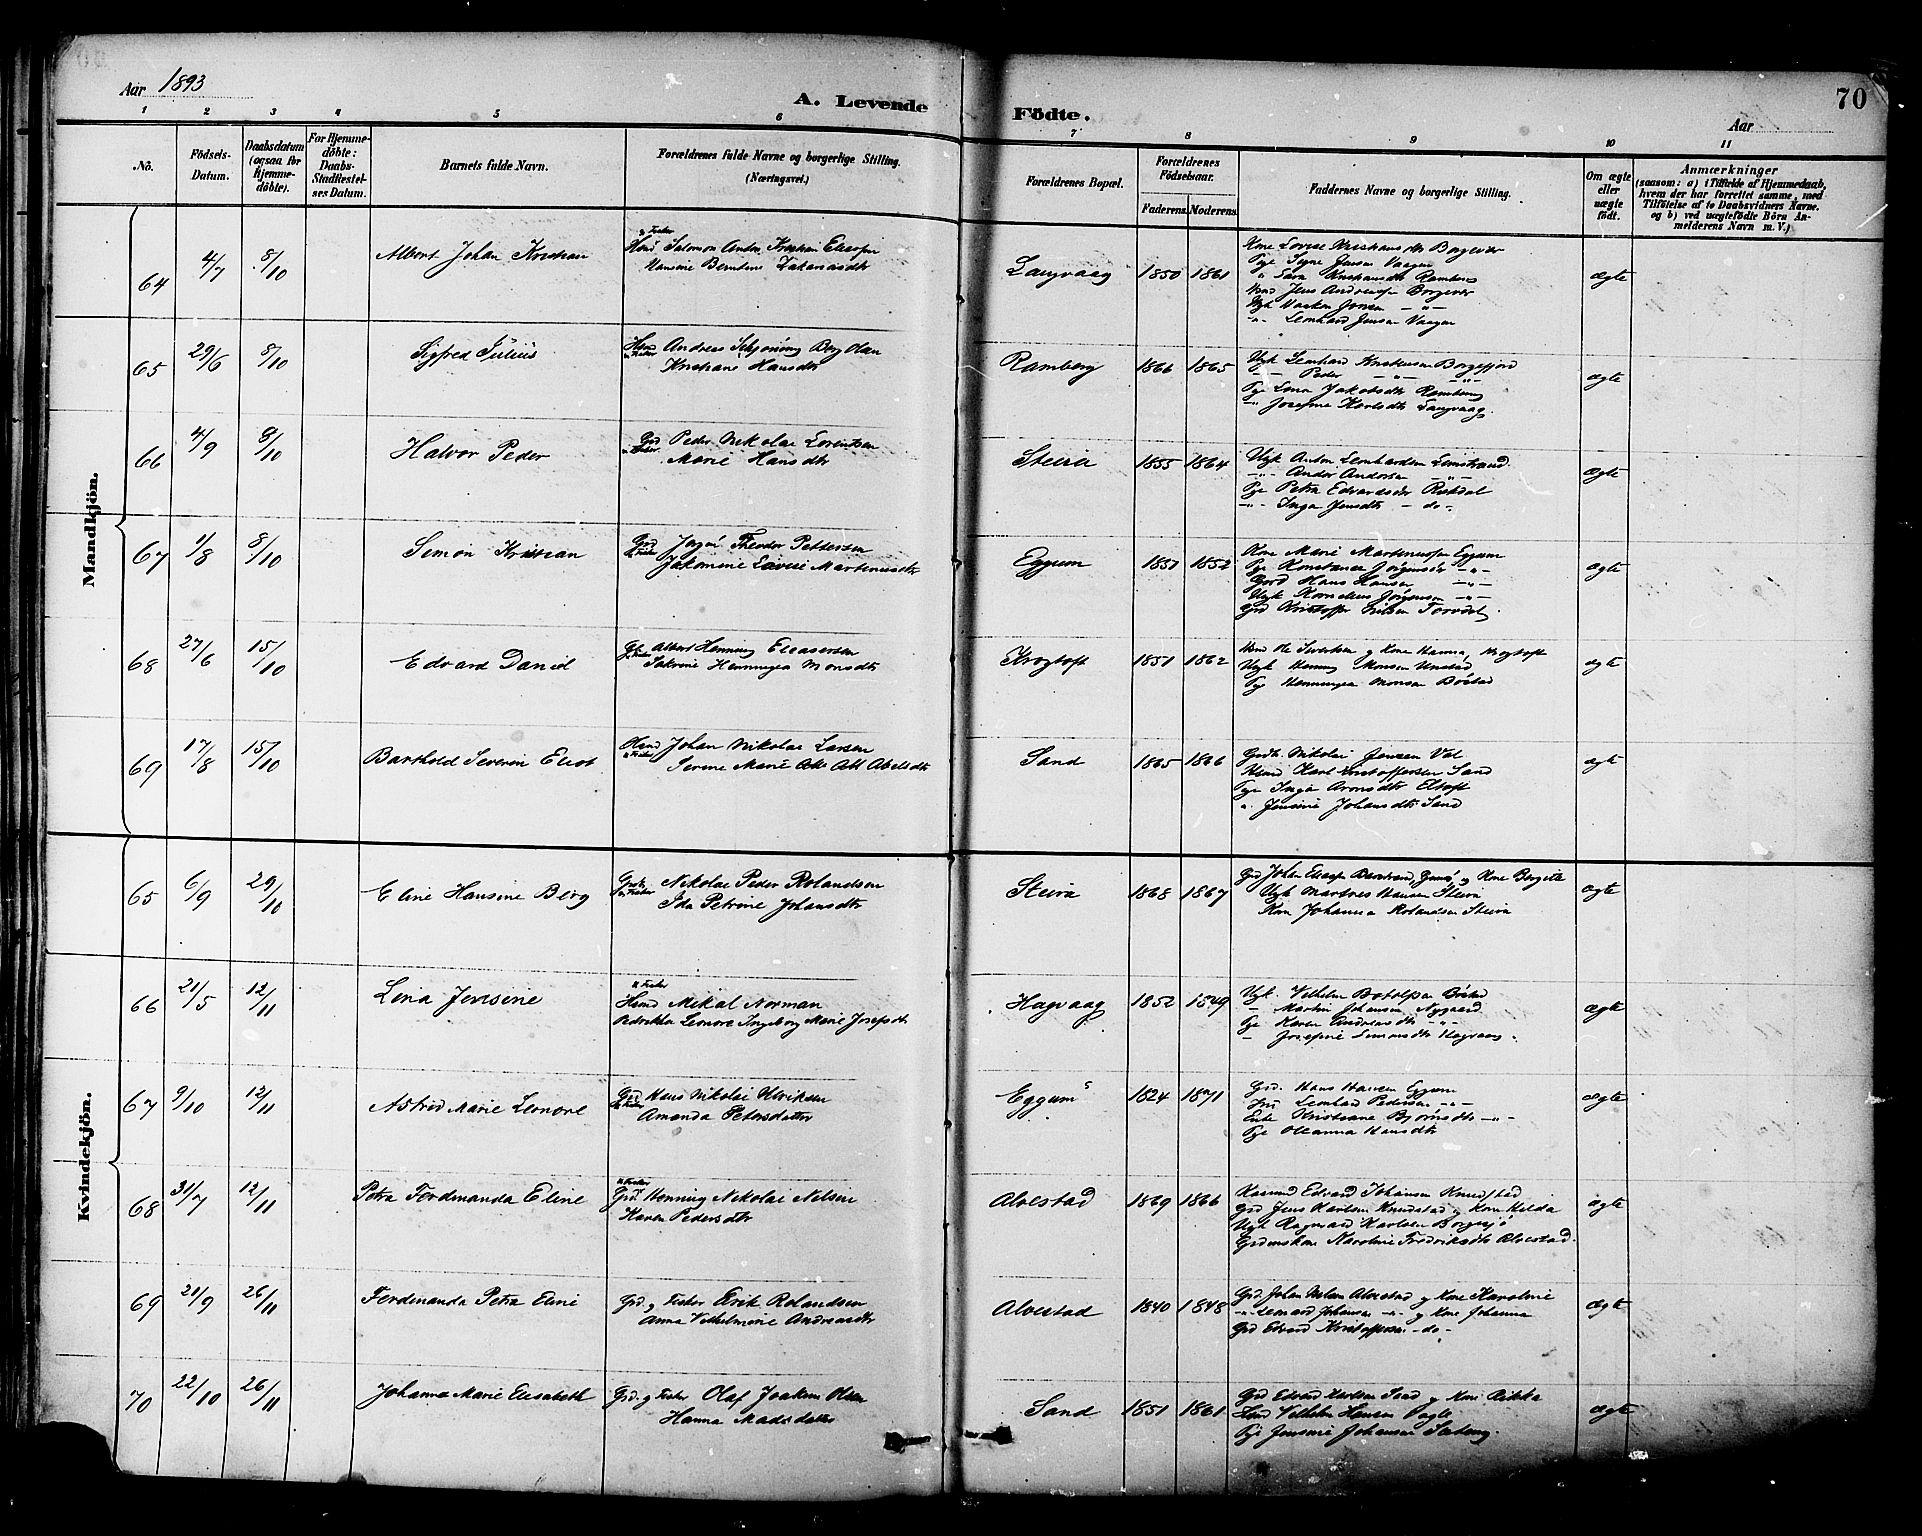 Aar 1893
A. Levende
Födte.
Aar
70
1 2 3 4 5 6 7 8 9 10 11
No.
Födsels-
Datum.
Daabsdatum
(ogsaa for
Hjemme-
döbte).
For Hjemme-
döbte:
Daabs-
Stadfæstel-
ses Datum.
Barnets fulde Navn.
Forældrenes fulde Navne og borgerlige Stilling.
(Næringsvei.)
Forældrenes Bopæl.
Forældrenes
Födselsaar.
Faderens. Moderens.
Faddernes Navne og borgerlige Stilling.
Om ægte
eller
uægte
födt.
Anmærkninger
(saasom: a) i Tilfælde af Hjemmedaab,
hvem der har forrettet samme, med
Tilföielse af to Daabsvidners Navne.
og b) ved uægtefödte Börn An-
melderens Navn m. V.)
Mandkjön.
64 4/7 8/10 Albert Johan Kristian
Salomon Andor Kristian
Hansine Berntine Zakariasdtr
Langvaag 1850 1861
Jens Andreasen Borgevær
Leonhard Jensen Vaagen
ægte
65 29/6 8/10 Sigfred Julius
Andreas Schjöning Berg Olsen
Kristiane Hansdtr
Ramberg 1866 1865
Ugk Leonhard Kristiansen Borgefjord
-"- Peder -"- -"-
Pge Lina Jakobsdtr Ramberg
-"- Josefine Karlsdtr Langvaag
ægte
66 4/9 8/10 Halvor Peder
Grd Peder Nikolai Lorentsen
Marie Hansdtr
Steira 1855 1864
Ugk Anton Leonhardsen Limstrand
-"- Andor Andersen -"-
Pge Petra Edvardsdtr
-"- Inga Jensdtr - do -
ægte
67 1/8 8/10 Simon Kristian
Grd Theodor Pettersen
Jakobine Lovise Martinusdtr
Eggum 1857 1852
Kone Marie Eggum
Pge Konstance Jörgensdtr -"-
Gbrd Hans Hansen -"-
Ugk Kornelius Jörgensen -"-
Grd Kristoffer Nilsen Torvdal
ægte
68 27/6 15/10 Edvard Daniel
Albert Henning Eleasersen
Henningea Monsdtr
Krogtoft 1851 1862
Ole Sivertsen og Kone Hanna, Krogtoft
Ugk Henning Monsen Unstad
Pge Henningea Monsen Böstad
ægte
69 17/8 15/10 Barthold Severin Eliot
Johan Nikolai Larsen
Serine Marie Abelsdtr
Sand 1865 1866
Nikolai Jensen Vol
Karl Kristoffersen Sand
Pge Inga Aronsdtr Eltoft
" Jensine Johansdtr Sand
ægte
Kvindekjön.
65 6/9 29/10 Eline Hansine Berg
Nikolai Peder Rolandsen
Ida Petrine Johansdtr
Steira 1868 1867
og Kone Bergitte
Ugk Martines Hansen Steira
Kone Johanna Rolandsen Steira
ægte
66 21/5 12/11 Lina Jensine
Mikal Norman
Fredrikka Leonore Ingeborg Marie Josefsdtr
Hagvaag 1852 1849
Ugk. Vilhelm Botolfsen Böstad
- Martin Johansen Nygaard
Pge Karen Andreasdtr -"-
- Josefine Simonsdtr Hagvaag
ægte
67 9/10 12/11 Astrid Marie Leonore
Grd Hans Nikolai Ulriksen
Amanda Petersdatter
Eggum 1824 1871
Grd. Hans Hansen Eggum
Leonhard Pedersen -"-
Enke Kristiane Bjørnsdtr -"-
Pge Oleanna Hansdtr
ægte
68 31/7 12/11 Petra Ferdinanda Eline
Grd. Henning Nikolai Nilsen
Karen Pedersdtr
Alvestad 1869 1866
Edvard Johansen Knudstad
Grd Jens Karlsen Knudstad og Kone Hilda
Ugk Ragnvard Karlsen Borgesjö
Grdmskone Karoline Fredriksdtr Alvestad.
ægte
69 21/9 26/11 Ferdinanda Petra Eline
Grd. og Fisker Erik Rolandsen
Anna Vilhelmine Andreasdtr
Alvestad 1840 1848
Grd Johan Nilsen Alvestad og Kone Karoline
Johansen -"- og Kone Johanna
Grd Edvard Kristoffersen - do -
ægte
70 22/10 26/11 Johanna Marie Elisabeth
Grd. og Fisker Olaf Joakim Olsen
Hanna Madsdatter
Sand 1851 1861
Grd Edvard Karlsen Sand og Kone Rikka
Vilhelm Hansen Vagle
Pge Jensine Johansen
ægte